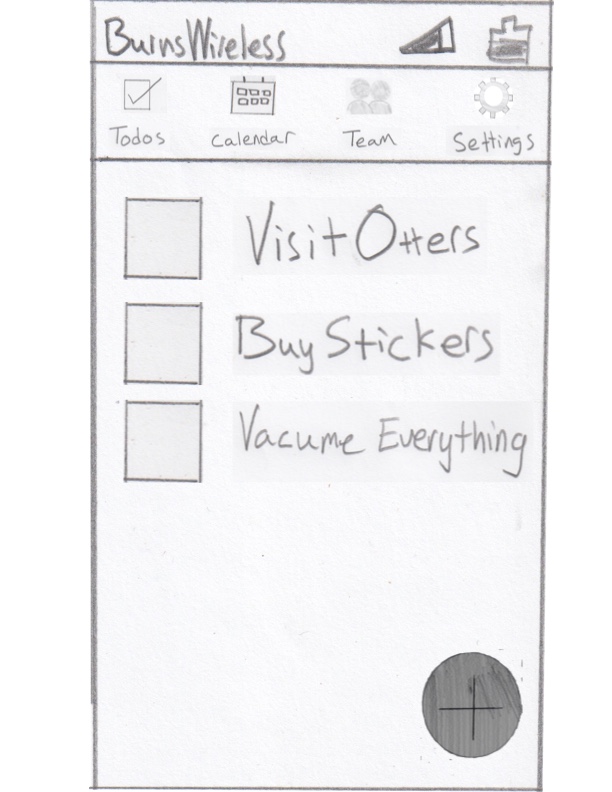 BurnsWireless
Todos Calendar Team Settings
Visit Otters
Buy Stickers
Vacume Everything